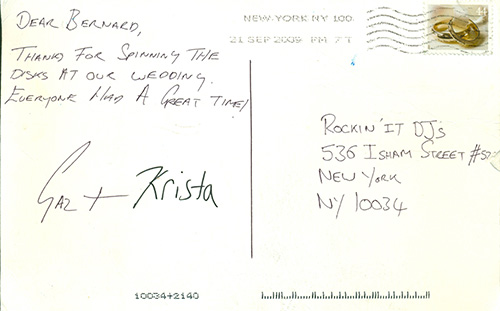 DEAR BERNARD,
THANKS FOR SPINNING THE
DISKS AT OUR WEDDING.
EVERYONE HAD A GREAT TIME!
GAZ + Krista
NEW YORK NY 100
21 SEP 2009 PM 7 T
44
ROCKIN' IT DJ's
536 ISHAM STREET
NEW YORK
NY 10034
10034+2140